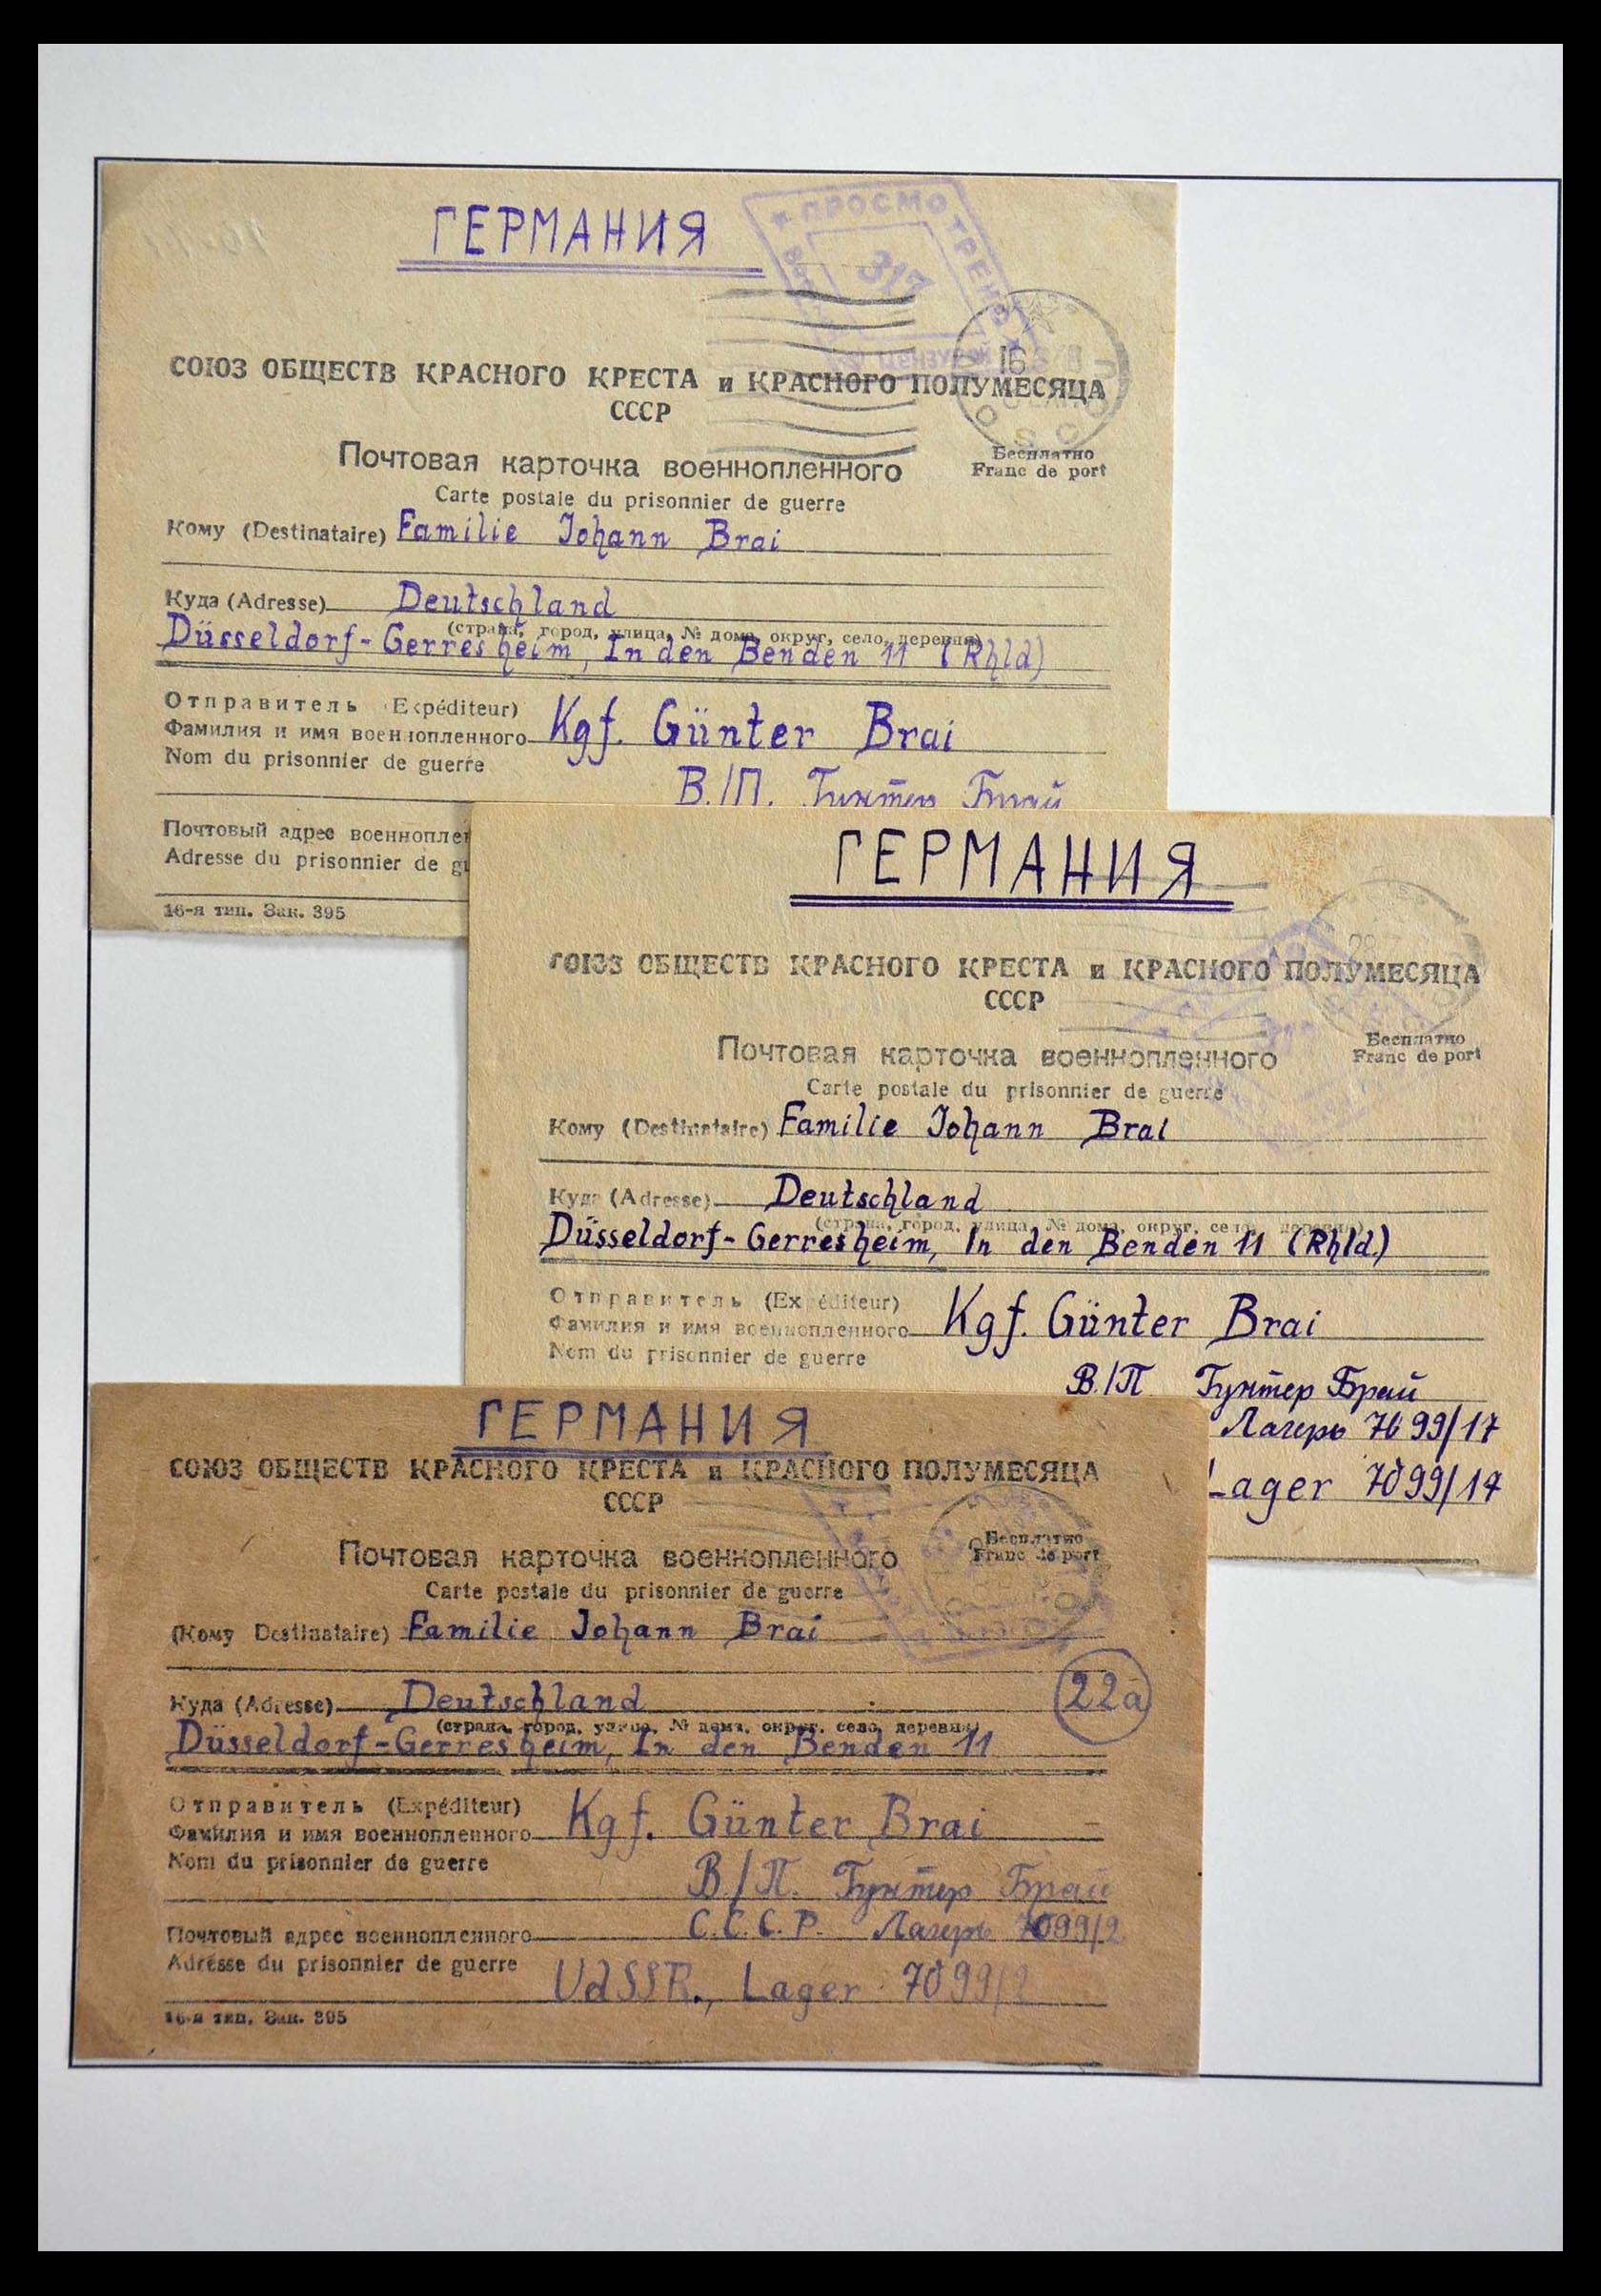 ГЕРМАНИЯ
ПРОСМОТРЕНО
317
16
СОЮЗ ОБЩЕСТВ КРАСНОГО КРЕСТА и КРАСНОГО ПОЛУМЕСЯЦА
СССР
Почтовая карточка военнопленного
Бесплатно
Franc de port
Carte postale du prisonnier de guerre
Кому (Destinataire) Familie Johann Brai
Куда (Adresse) Deutschland
(страна, город, улица, № дома, округ, село, деревня)
Düsseldorf-Gerresheim, In den Benden 11 (Rhld)
Отправитель (Expéditeur)
Фамилия и имя военнопленного Kgf. Günter Brai
Nom du prisonnier de guerre
В./П. Гунтер Брай
Почтовый адрес военноплен
Adresse du prisonnier de gu
16-я тип. Зак. 395
ГЕРМАНИЯ
СОЮЗ ОБЩЕСТВ КРАСНОГО КРЕСТА и КРАСНОГО ПОЛУМЕСЯЦА
СССР
Почтовая карточка военнопленного
Бесплатно
Franc de port
Carte postale du prisonnier de guerre
Кому (Destinataire) Familie Johann Brai
Куда (Adresse) Deutschland
(страна, город, улица, № дома, округ, село, деревня)
Düsseldorf-Gerresheim, In den Benden 11 (Rhld.)
Отправитель (Expéditeur)
Фамилия и имя военнопленного Kgf. Günter Brai
Nom du prisonnier de guerre
В./П Гунтер Брай
Лагерь 7099/17
Lager 7099/17
ГЕРМАНИЯ
СОЮЗ ОБЩЕСТВ КРАСНОГО КРЕСТА и КРАСНОГО ПОЛУМЕСЯЦА
СССР
Почтовая карточка военнопленного
Бесплатно
Franc de port
Carte postale du prisonnier de guerre
(Кому Destinataire) Familie Johann Brai
22a
Куда (Adresse) Deutschland
(страна, город, улица, № дома, округ, село, деревня)
Düsseldorf-Gerresheim, In den Benden 11
Отправитель (Expéditeur)
Фамилия и имя военнопленного Kgf. Günter Brai
Nom du prisonnier de guerre
В./П. Гунтер Брай
Почтовый адрес военнопленного С.С.С.Р. Лагерь 7099/2
Adresse du prisonnier de guerre UdSSR., Lager 7099/2
16-я тип. Зак. 395